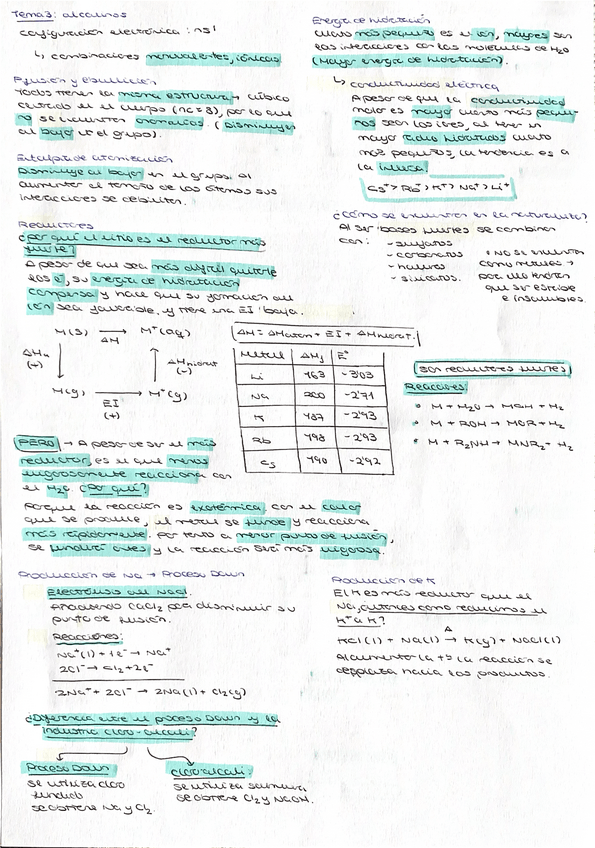 Tema 3: alcalinos
configuración electrónica: ns¹
↳ combinaciones monovalentes, iónicas
P. fusión y ebullición
Todos tienen la misma estructura → cúbico
centrado en el cuerpo (nc=8), por lo que
no se encuentran anomalías. (Disminuye
al bajar en el grupo).
Entalpía de atomización
Disminuye al bajar en el grupo. al
aumentar el tamaño de los átomos sus
interacciones se debilitan.
Reductores
¿Por qué el litio es el reductor más
fuerte?
A pesar de que sea más difícil quitarle
los e⁻, su energía de hidratación
compensa y hace que su formación del
ión sea favorable, y tiene una EI baja.
M(s) → M⁺(aq)
ΔH
ΔHa
(+)
ΔHhidrat
(-)
M(g) → M⁺(g)
EI
(+)
ΔH = ΔHatom + EI + ΔHhidrat.
Metal ΔHf E°
Li 163 -3'03
Na 200 -2'71
K 187 -2'93
Rb 198 -2'93
Cs 190 -2'92
PERO → A pesar de ser el más
reductor, es el que menos
vigorosamente reacciona con
el H₂O ¿Por qué?
Porque la reacción es exotérmica, con el calor
que se produce, el metal se funde y reacciona
más rápidamente. Por tanto a menor punto de fusión,
se fundirá antes y la reacción será más vigorosa.
Producción de Na → Proceso Down
Electrólisis del NaCl.
Añadiendo CaCl₂ para disminuir su
punto de fusión.
Reacciones:
Na⁺(l) + 1e⁻ → Na⁺
2Cl⁻ → Cl₂ + 2e⁻
2Na⁺ + 2Cl⁻ → 2Na(l) + Cl₂(g)
¿Diferencia entre el proceso Down y la
industria cloro-alcali?
Proceso Down
se utiliza cloro
fundido
se obtiene Na y Cl₂.
cloro-alcali:
se utiliza salmuera,
se obtiene Cl₂ y NaOH.
Energía de hidratación
Cuanto más pequeño es el ión, mayores son
las interacciones con las moléculas de H₂O
(Mayor energía de hidratación).
↳ conductividad eléctrica
A pesar de que la conductividad
molar es mayor cuanto más peque-
ños sean los iones, al tener un
mayor radio hidratados cuanto
más pequeños, la tendencia es a
la inversa.
Cs⁺ > Rb⁺ > K⁺ > Na⁺ > Li⁺
¿Cómo se encuentran en la naturaleza?
Al ser bases fuertes se combinan
con: - sulfatos
- carbonatos
- haluros
- silicatos.
! No se encuentran
como metales →
por ello tendrán
que ser estable
e insolubles.
son reductores fuertes
Reacciones:
• M + H₂O → MOH + H₂
• M + ROH → MOR + H₂
• M + R₂NH → MNR₂ + H₂
Producción de K
El K es más reductor que el
Na, ¿entonces como reducimos el
K⁺ a K?
Δ
KCl(l) + Na(l) → K(g) + NaCl(l)
Al aumentar la Tª la reacción se
desplaza hacia los productos.